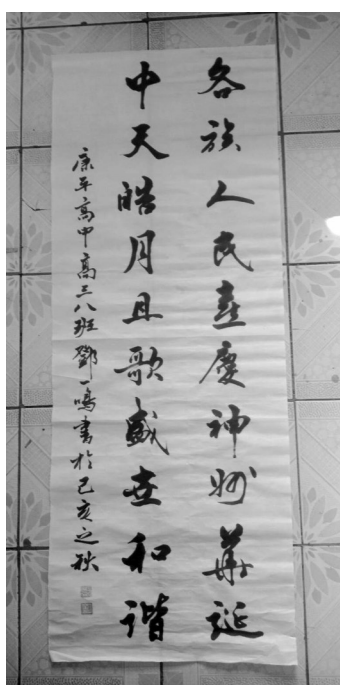 各族人民喜慶神州華诞
中天皓月且歌盛世和谐
康平高中高三八班鄧一鳴書於己亥之秋